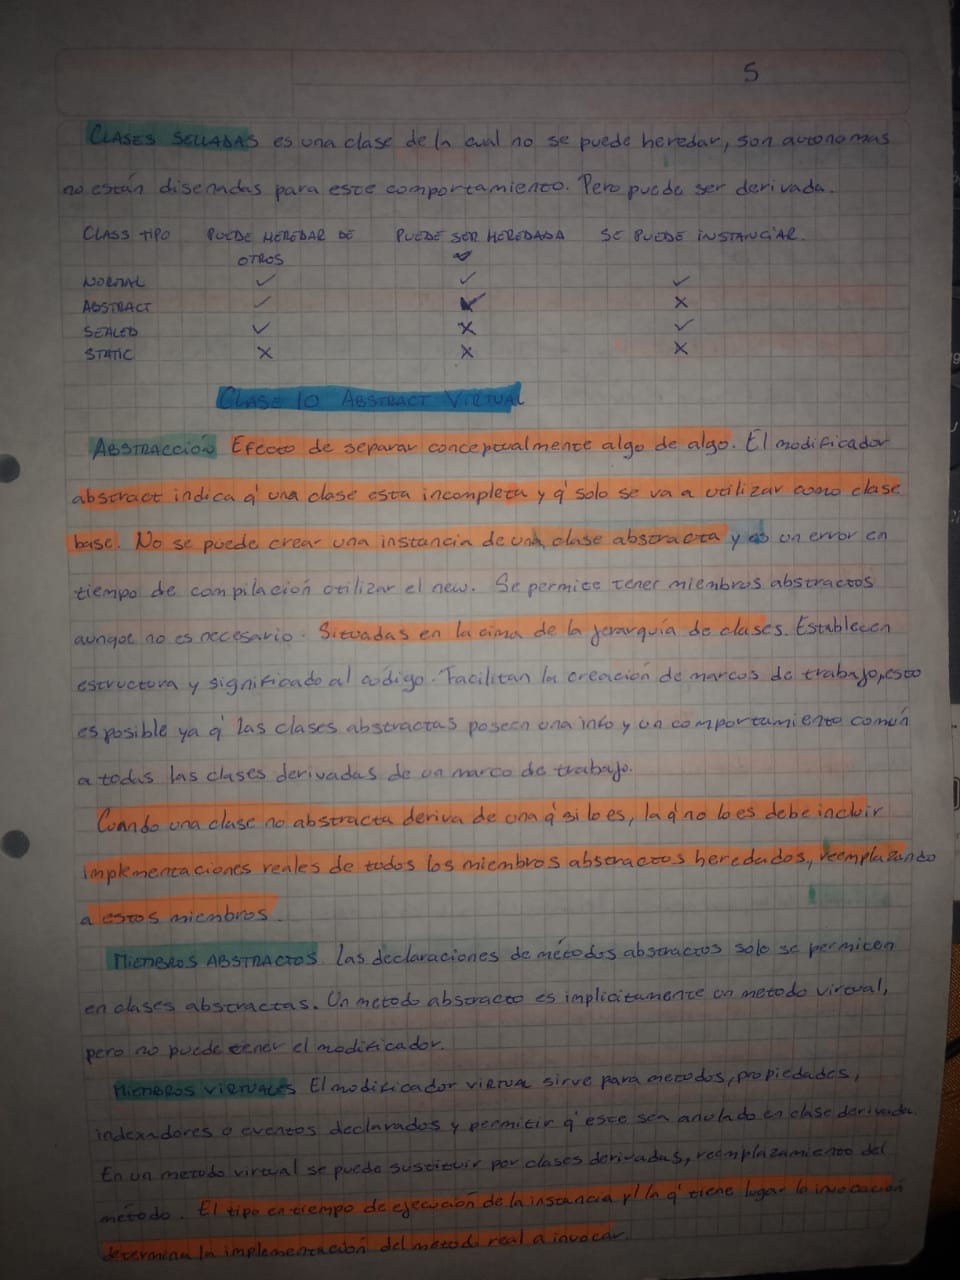 5
CLASES SELLADAS es una clase de la cual no se puede heredar, son autonomas
no están diseñadas para este comportamiento. Pero puede ser derivada.
CLASS TIPO PUEDE HEREDAR DE OTROS PUEDE SER HEREDADA SE PUEDE INSTANCIAR.
NORMAL ✓ ✓ ✓
ABSTRACT ✓ ✓ X
SEALED ✓ X ✓
STATIC X X X
CLASE 10 ABSTRACT VIRTUAL
ABSTRACCIÓN Efecto de separar conceptualmente algo de algo. El modificador
abstract indica q' una clase esta incompleta y q' solo se va a utilizar como clase
base. No se puede crear una instancia de una clase abstracta y es un error en
tiempo de compilación utilizar el new. Se permite tener miembros abstractos
aunque no es necesario. Situadas en la cima de la jerarquía de clases. Establecen
estructura y significado al código. Facilitan la creación de marcos de trabajo, esto
es posible ya q' las clases abstractas poseen una info y un comportamiento común
a todas las clases derivadas de un marco de trabajo.
Cuando una clase no abstracta deriva de una q' si lo es, la q' no lo es debe incluir
implementaciones reales de todos los miembros abstractos heredados, reemplazando
a estos miembros.
MIEMBROS ABSTRACTOS. Las declaraciones de métodos abstractos solo se permiten
en clases abstractas. Un metodo abstracto es implicitamente un metodo virtual,
pero no puede tener el modificador.
MIEMBROS VIRTUALES El modificador VIRTUAL sirve para metodos, propiedades,
indexadores o eventos declarados y permitir q' este sea anulado en clase derivada.
En un metodo virtual se puede sustituir por clases derivadas, reemplazamiento del
método. El tipo en tiempo de ejecución de la instancia p/ la q' tiene lugar la invocación
determina la implementación del metodo real a invocar.